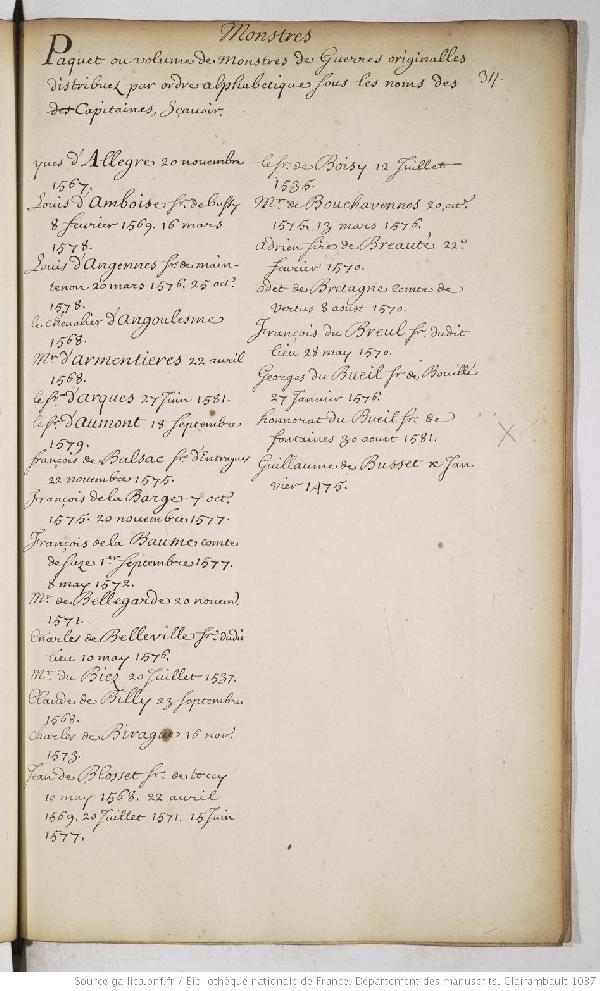 Monstres
Paquet ou volume de Monstres de Guerres originalles
distribuez par ordre alphabetique sous les noms des
des Capitaines, Sçavoir.
34
yves d'Allegre 20 novembre
1567.
Louis d'Amboise sr. de bussy
8 fevrier 1569. 16 mars
1578.
Louis d'Angennes sr. de main-
tenon 20 mars 1576. 25 octe.
1578.
le chevalier d'Angoulesme
1568.
Mr. d'armentieres 22 avril
1568.
le sr. d'arques 27 Juin 1581.
le sr. d'aumont 18 septembre
1579.
françois de Balsac sr. d'Entragues
22 novembre 1575.
François de la Barge 7 octe.
1575. 20 novembre 1577.
François de la Baume comte
de suze 1er septembre 1577.
8 may 1572.
Mr. de Bellegarde 20 novem.
1571.
Charles de Belleville sr. dudit
lieu 10 may 1576.
Mr. du Biez 20 Juillet 1537.
Claude de Billy 23 septembre
1568.
Charles de Birague 16 nov.
1573.
Jean de Blosset sr. de torcy
10 may 1568. 22 avril
1569. 20 Juillet 1571. 15 Juin
1577.
le sr. de Boisy 12 Juillet
1535.
Mr. de Bouchavennes 20 octe.
1575. 13 mars 1576.
Adrien sire de Breauté 22e
fevrier 1570.
odet de Bretagne comte de
vertus 8 aoust 1570.
François du Breul sr. dudit
lieu 28 may 1570.
Georges du Bueil sr. de Bouillé
27 Janvier 1576.
honnorat du Bueil sr. de
fontaines 30 aoust 1581.
Guillaume de Busset x Jan
vier 1475.
Source gallica.bnf.fr / Bibliothèque nationale de France. Département des manuscrits. Clairambault 1087